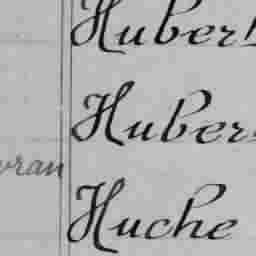 Hubert
Huber
vran
Huche